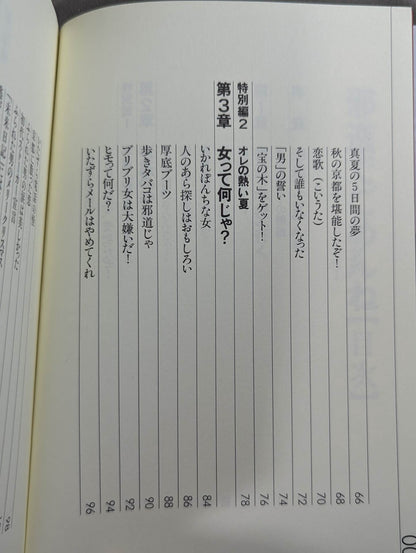 真夏の5日間の夢 66
秋の京都を堪能したぞ! 68
恋歌(こいうた) 70
そして誰もいなくなった 72
「男」の誓い 74
「宝の木」をゲット! 76
特別編2 オレの熱い夏 78
第3章 女って何じゃ?
いかれぽんちな女 84
人のあら探しはおもしろい 86
厚底ブーツ 88
歩きタバコは邪道じゃ 90
ブリブリ女は大嫌いだ! 92
ヒモって何だ? 94
いたずらメールはやめてくれ 96